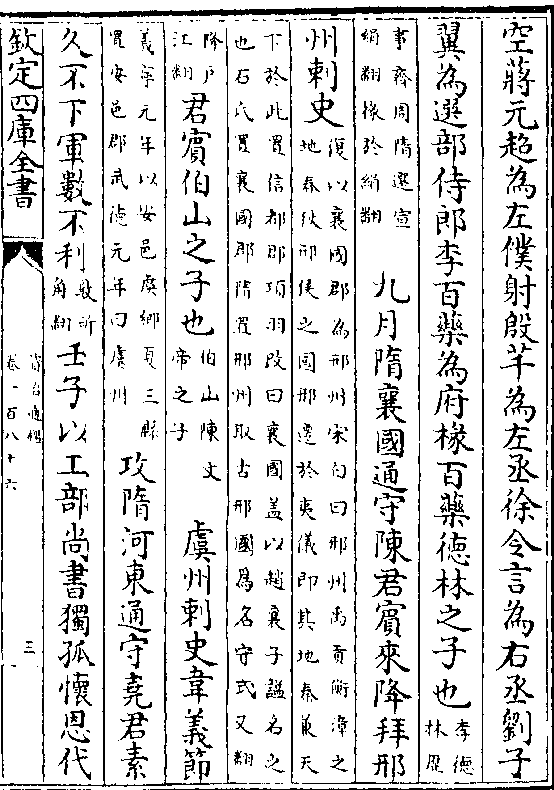 空蔣元超為左僕射殷芊為左丞徐令言為右丞劉子
翼為選部侍郎李百藥為府掾百藥德林之子也李德林歷
事齊周隋選宣絹翻掾於絹翻九月隋襄國通守陳君賓來降拜邢
州刺史復以襄國郡為邢州宋白曰邢州禹貢衡漳之地春秋邢侯之國邢遷於夷儀即其地秦兼天
下於此置信都郡項羽改曰襄國蓋以趙襄子諡名之也石氏置襄國郡隋置邢州取古邢國為名守式又翻
降戶江翻君賓伯山之子也伯山陳文帝之子虞州刺史韋義節
義寧元年以安邑虞鄉夏三縣置安邑郡武德元年曰虞州攻隋河東通守堯君素
久不下軍數不利數所角翻壬子以工部尚書獨孤懷恩代
欽定四庫全書
資治通鑑
卷一百八十六
三